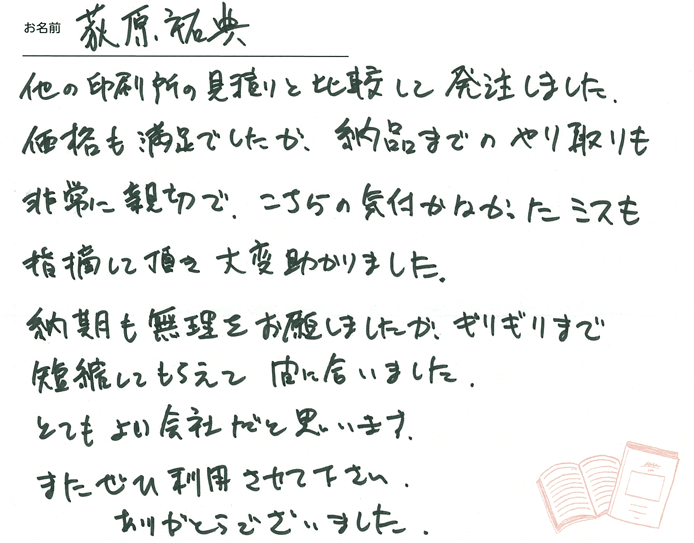 お名前 荻原祐典
他の印刷所の見積りと比較して発注しました.
価格も満足でしたが、納品までのやり取りも
非常に親切で、こちらの気付かなかったミスも
指摘して頂き大変助かりました。
納期も無理をお願いしましたが、ギリギリまで
短縮してもらえて間に合いました.
とてもよい会社だと思います.
またぜひ利用させて下さい.
ありがとうございました.